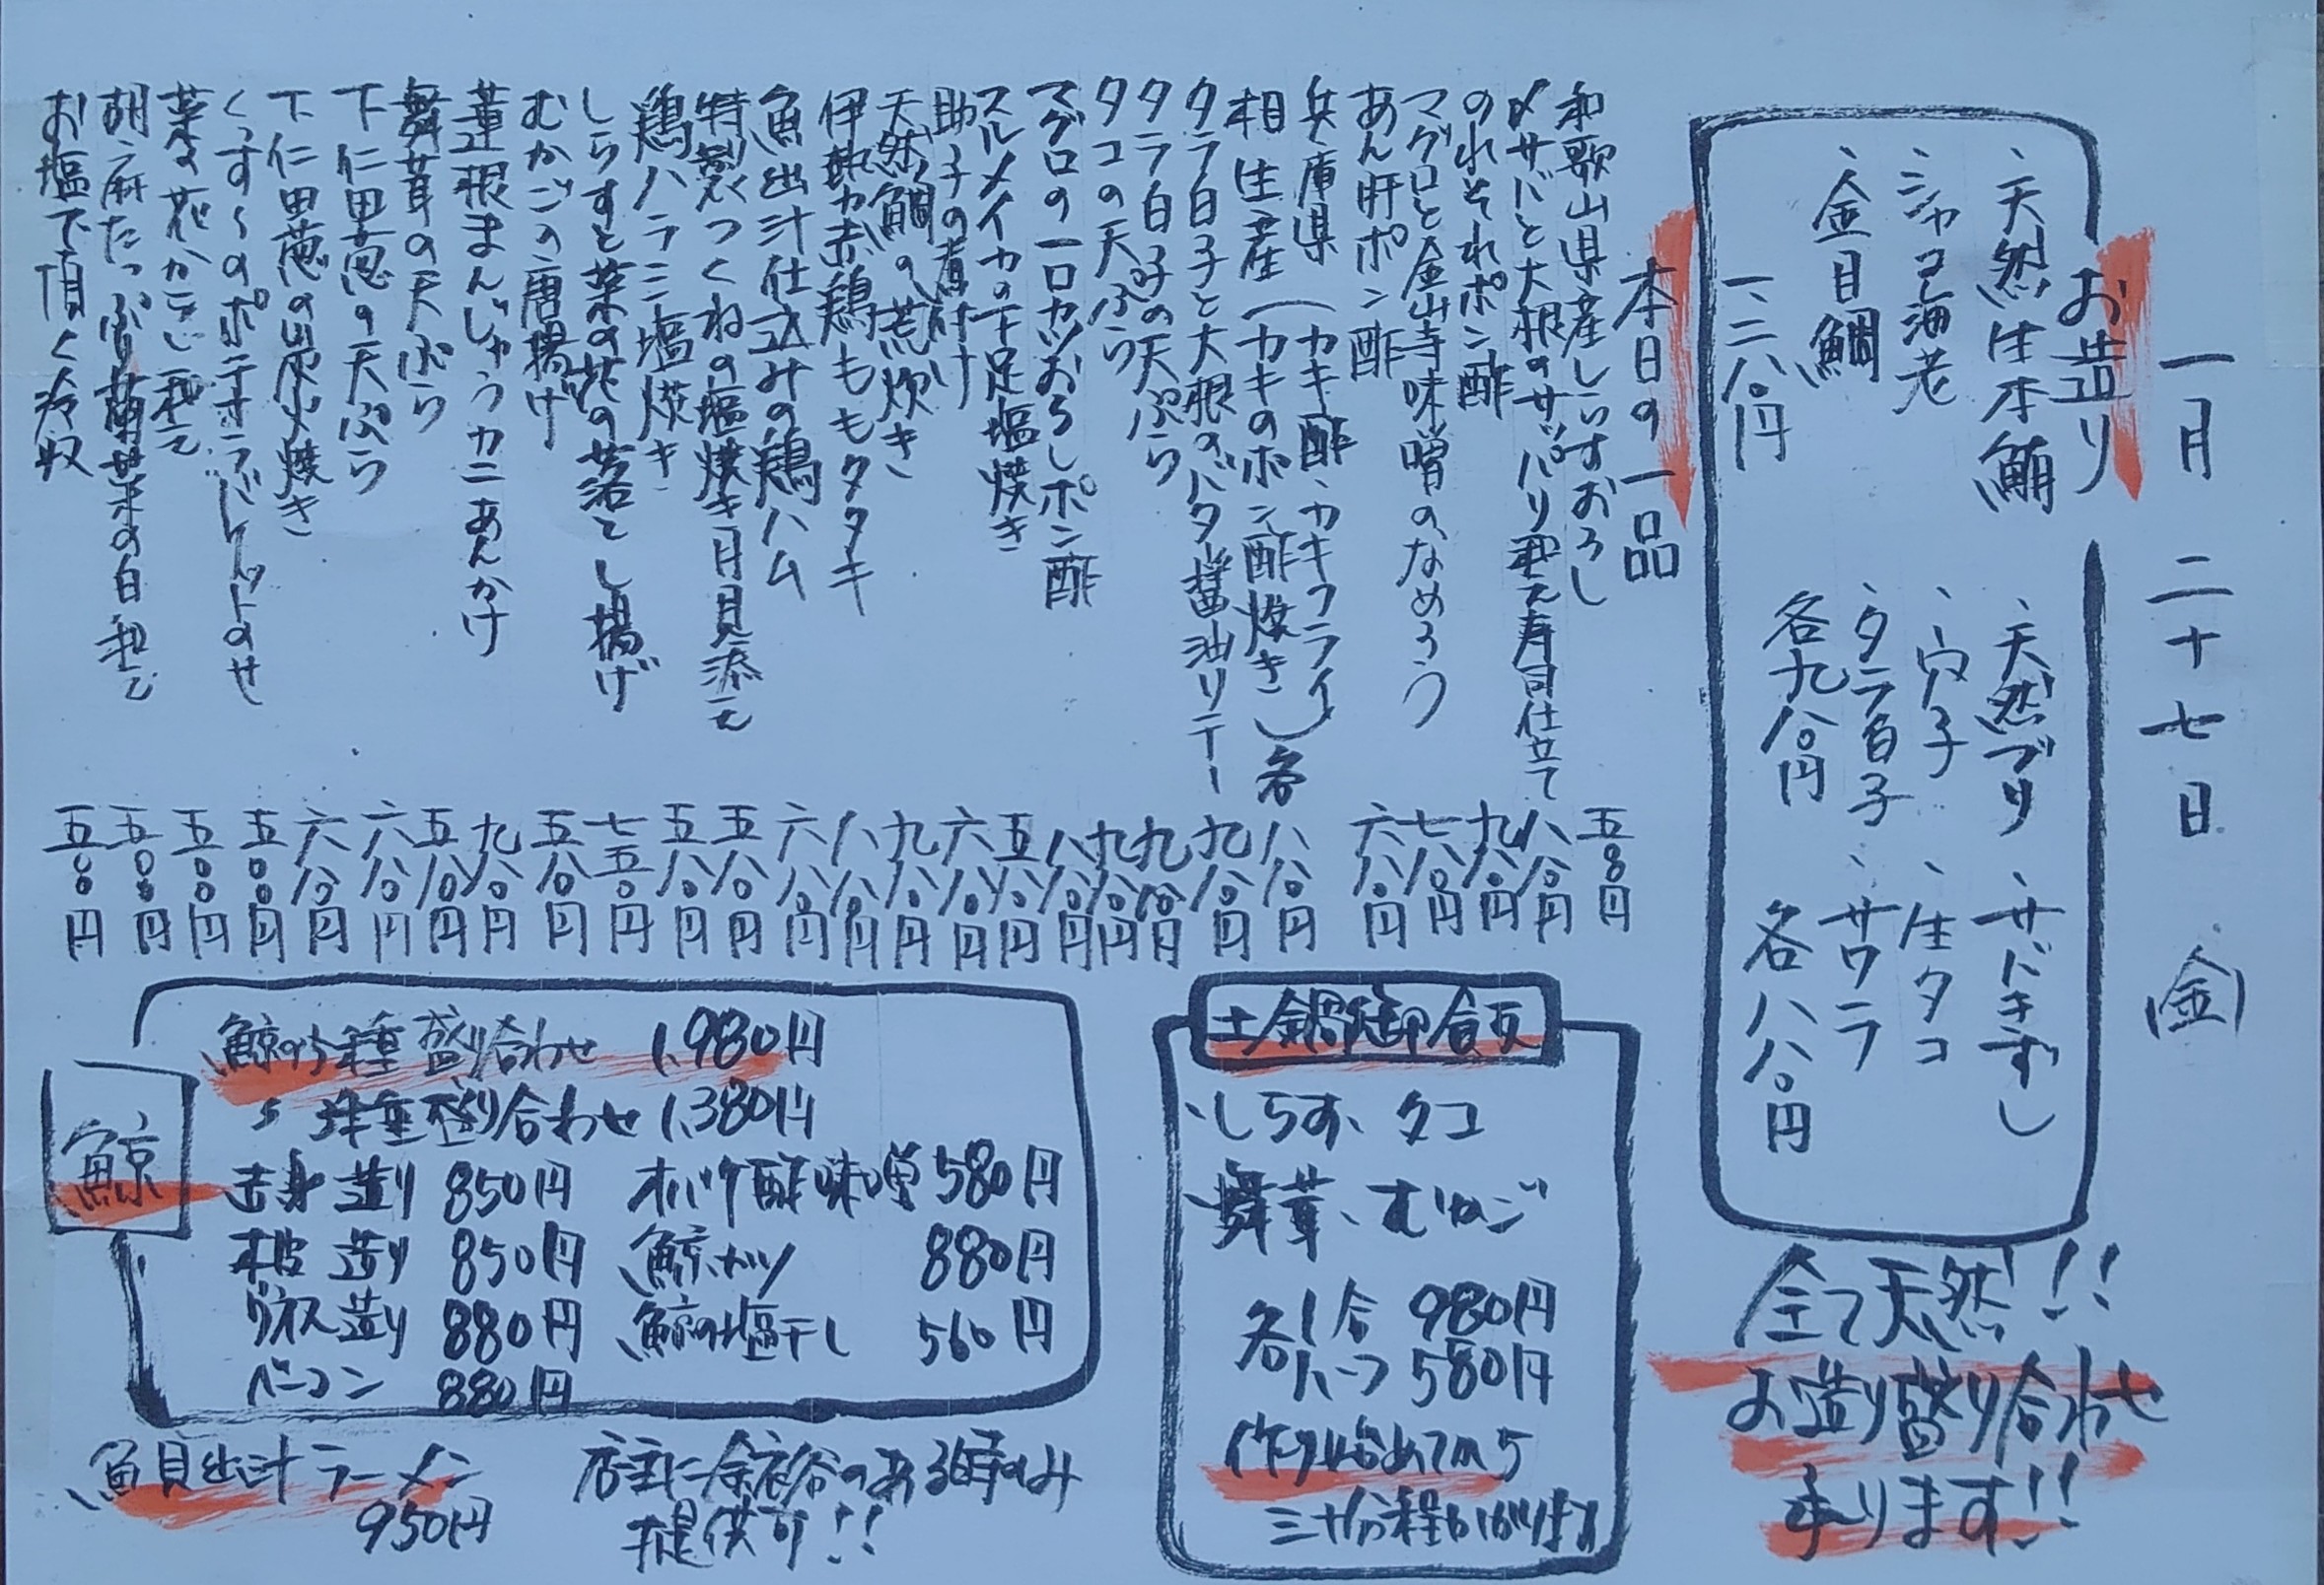 一月二十七日(金)
お造り
、天然生本鮪
、シャコ海老
、金目鯛
一、二八〇円
、天然ブリ
、穴子
、タラ白子
各九八〇円
、サバきずし
、生タコ
、サワラ
各八八〇円
全て天然!!
お造り盛り合わせ
承ります!!
本日の一品
和歌山県産しらすおろし 五〇〇円
〆サバと大根のサッパリ和え寿司仕立て 八八〇円
のれそれポン酢 九八〇円
マグロと金山寺味噌のなめろう 七八〇円
あん肝ポン酢 六八〇円
兵庫県(カキ酢、カキフライ
相生産(カキのポン酢焼き)各 八八〇円
タラ白子と大根のバター醤油ソテー 九八〇円
タラ白子の天ぷら 九八〇円
タコの天ぷら 九八〇円
マグロの一口カツおろしポン酢 八八〇円
スルメイカの下足塩焼き 五八〇円
助子の煮付け 六八〇円
天然鯛の荒炊き 九八〇円
伊勢赤鶏ももタタキ 八八〇円
魚出汁仕込みの鶏ハム 六八〇円
特製つくねの塩焼き月見添え 五八〇円
鶏ハラミ塩焼き 五八〇円
しらすと菜の花の落とし揚げ 七五〇円
むかごの唐揚げ 五八〇円
蓮根まんじゅうカニあんかけ 九八〇円
舞茸の天ぷら 五八〇円
下仁田葱の天ぷら 六八〇円
下仁田葱の炭火焼き 六八〇円
くんすくのポテサラバケットのせ 五〇〇円
菜の花からし和え 五〇〇円
胡麻たっぷり菊菜の白和え 五〇〇円
お塩で頂く冷奴 五〇〇円
土鍋御飯
、しらす、タコ
、舞茸、むかご
各1合 980円
各ハーフ 580円
作り始めてから
三十分程かかります
鯨
鯨の5種盛り合わせ 1,980円
〃 3種盛り合わせ 1,380円
赤身造り 850円
本皮造り 850円
ウネス造り 880円
ベーコン 880円
オバケ酢味噌 580円
鯨カツ 880円
鯨の塩干し 560円
魚貝出汁ラーメン
950円
店主に余裕のある時のみ
提供可!!